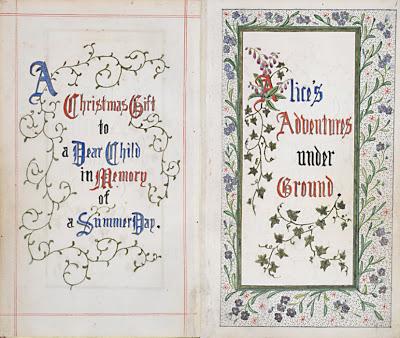 A
Christmas Gift
to
a Dear Child
in Memory
of
a Summer Day.
Alice's
Adventures
under
Ground.